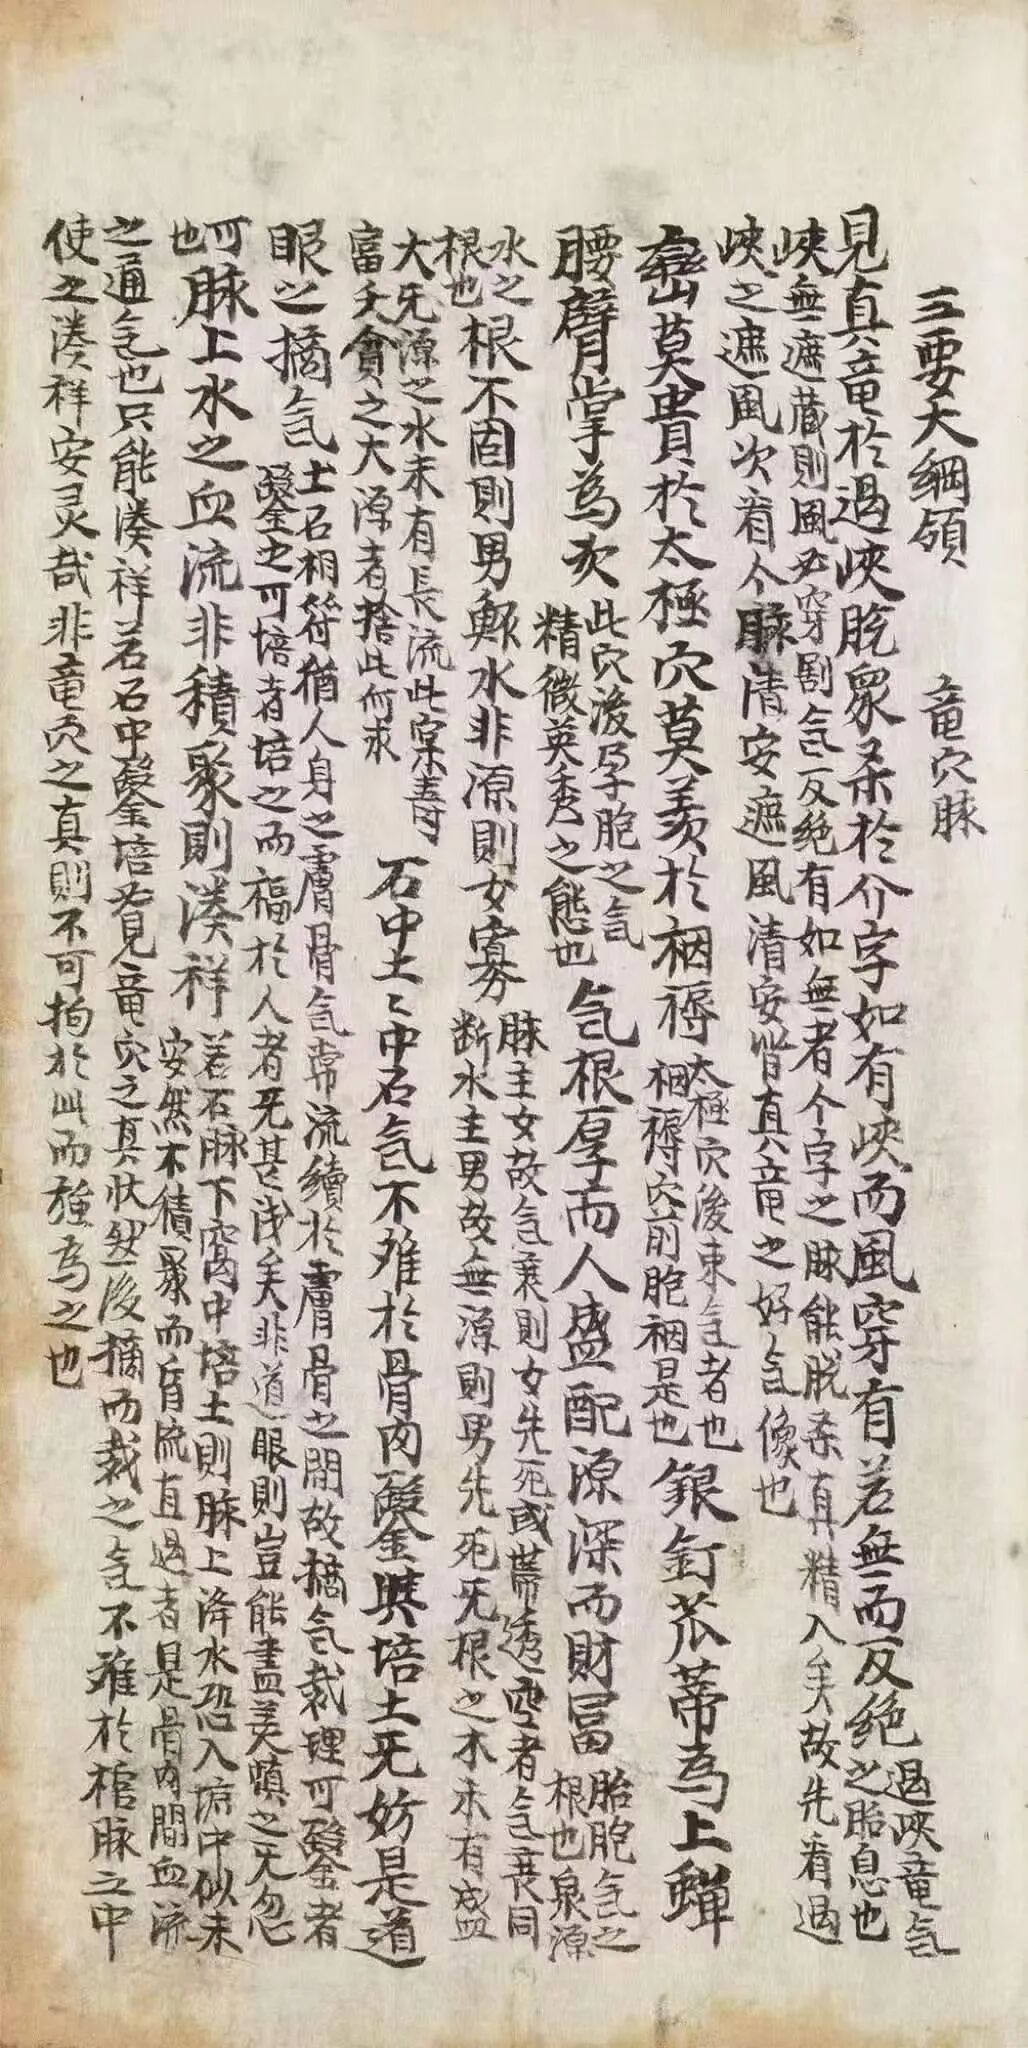 三要大綱領　竜穴脉
見真竜於過峽脱衆柔於个字如有峽而風穿有若無而反絶過峽竜気
之胎息也
峽無遮蔵則風必穿割気反絶有如無者个字之脉能脱柔有真精入矣故先看過
峽之遮風次看个脉清安遮風清安皆真竜之好気像也
巒莫貴於太極穴莫羙於裀褥太極穴後東気者也
裀褥穴前胞裀是也銀釘苽蒂為上蝉
腰臂掌為次此穴後孕胞之気
精微英秀之態也気根厚而人盛配源深而財冨胎胞気之
根也泉源
水之
根也根不固則男鰥水非源則女寡脉主女故気衰則女先死或落透空者気衰同
断水主男故無源則男先死旡根之木未有盛
大旡源之水未有長流此寀壽
富夭貧之大源者捨此何求石中土〻中石気不难於骨肉鑿與培土旡妨是道
眼之摘気土石相符猶人身之膚骨気常流續於膚骨之間故摘気裁理可鑿者
鑿之可培者培之而福於人者旡甚浅矣非道眼則豈能盡美慎之旡忽
可
也脉上水之血流非積聚則湊祥若石脉下窩中培土則脉上降水恐入𤵸中似未
安然不積聚而盲流直過者是骨内間血流
之通気也只能湊祥若石中鑿培必覓竜穴之真状然後摘而裁之気不难於棺脉立中
使之湊祥安灵哉非竜穴之真則不可拘於此而強為之也